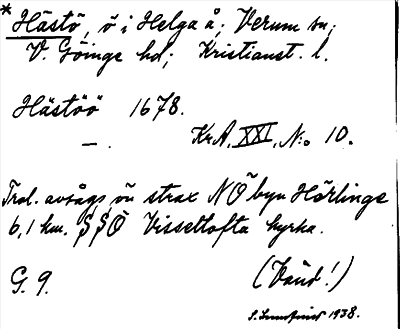 * Hästö, ö i Helga å; Verum sn;
V. Göinge hd; Kristianst. l.
Hästöö 1678.
— . KrA, XXI, N:o 10.
Trol. avsågs ön strax NÖ byn Hörlinge
6,1 km. SSÖ Visseltofta kyrka.
G. 9. (Vänd!)
1938.